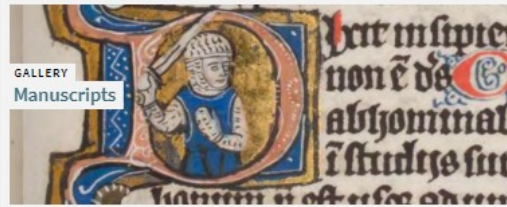 GALLERY
Manuscripts
Dixit insipie
non ē ds C
abhominab
ī studijs sui